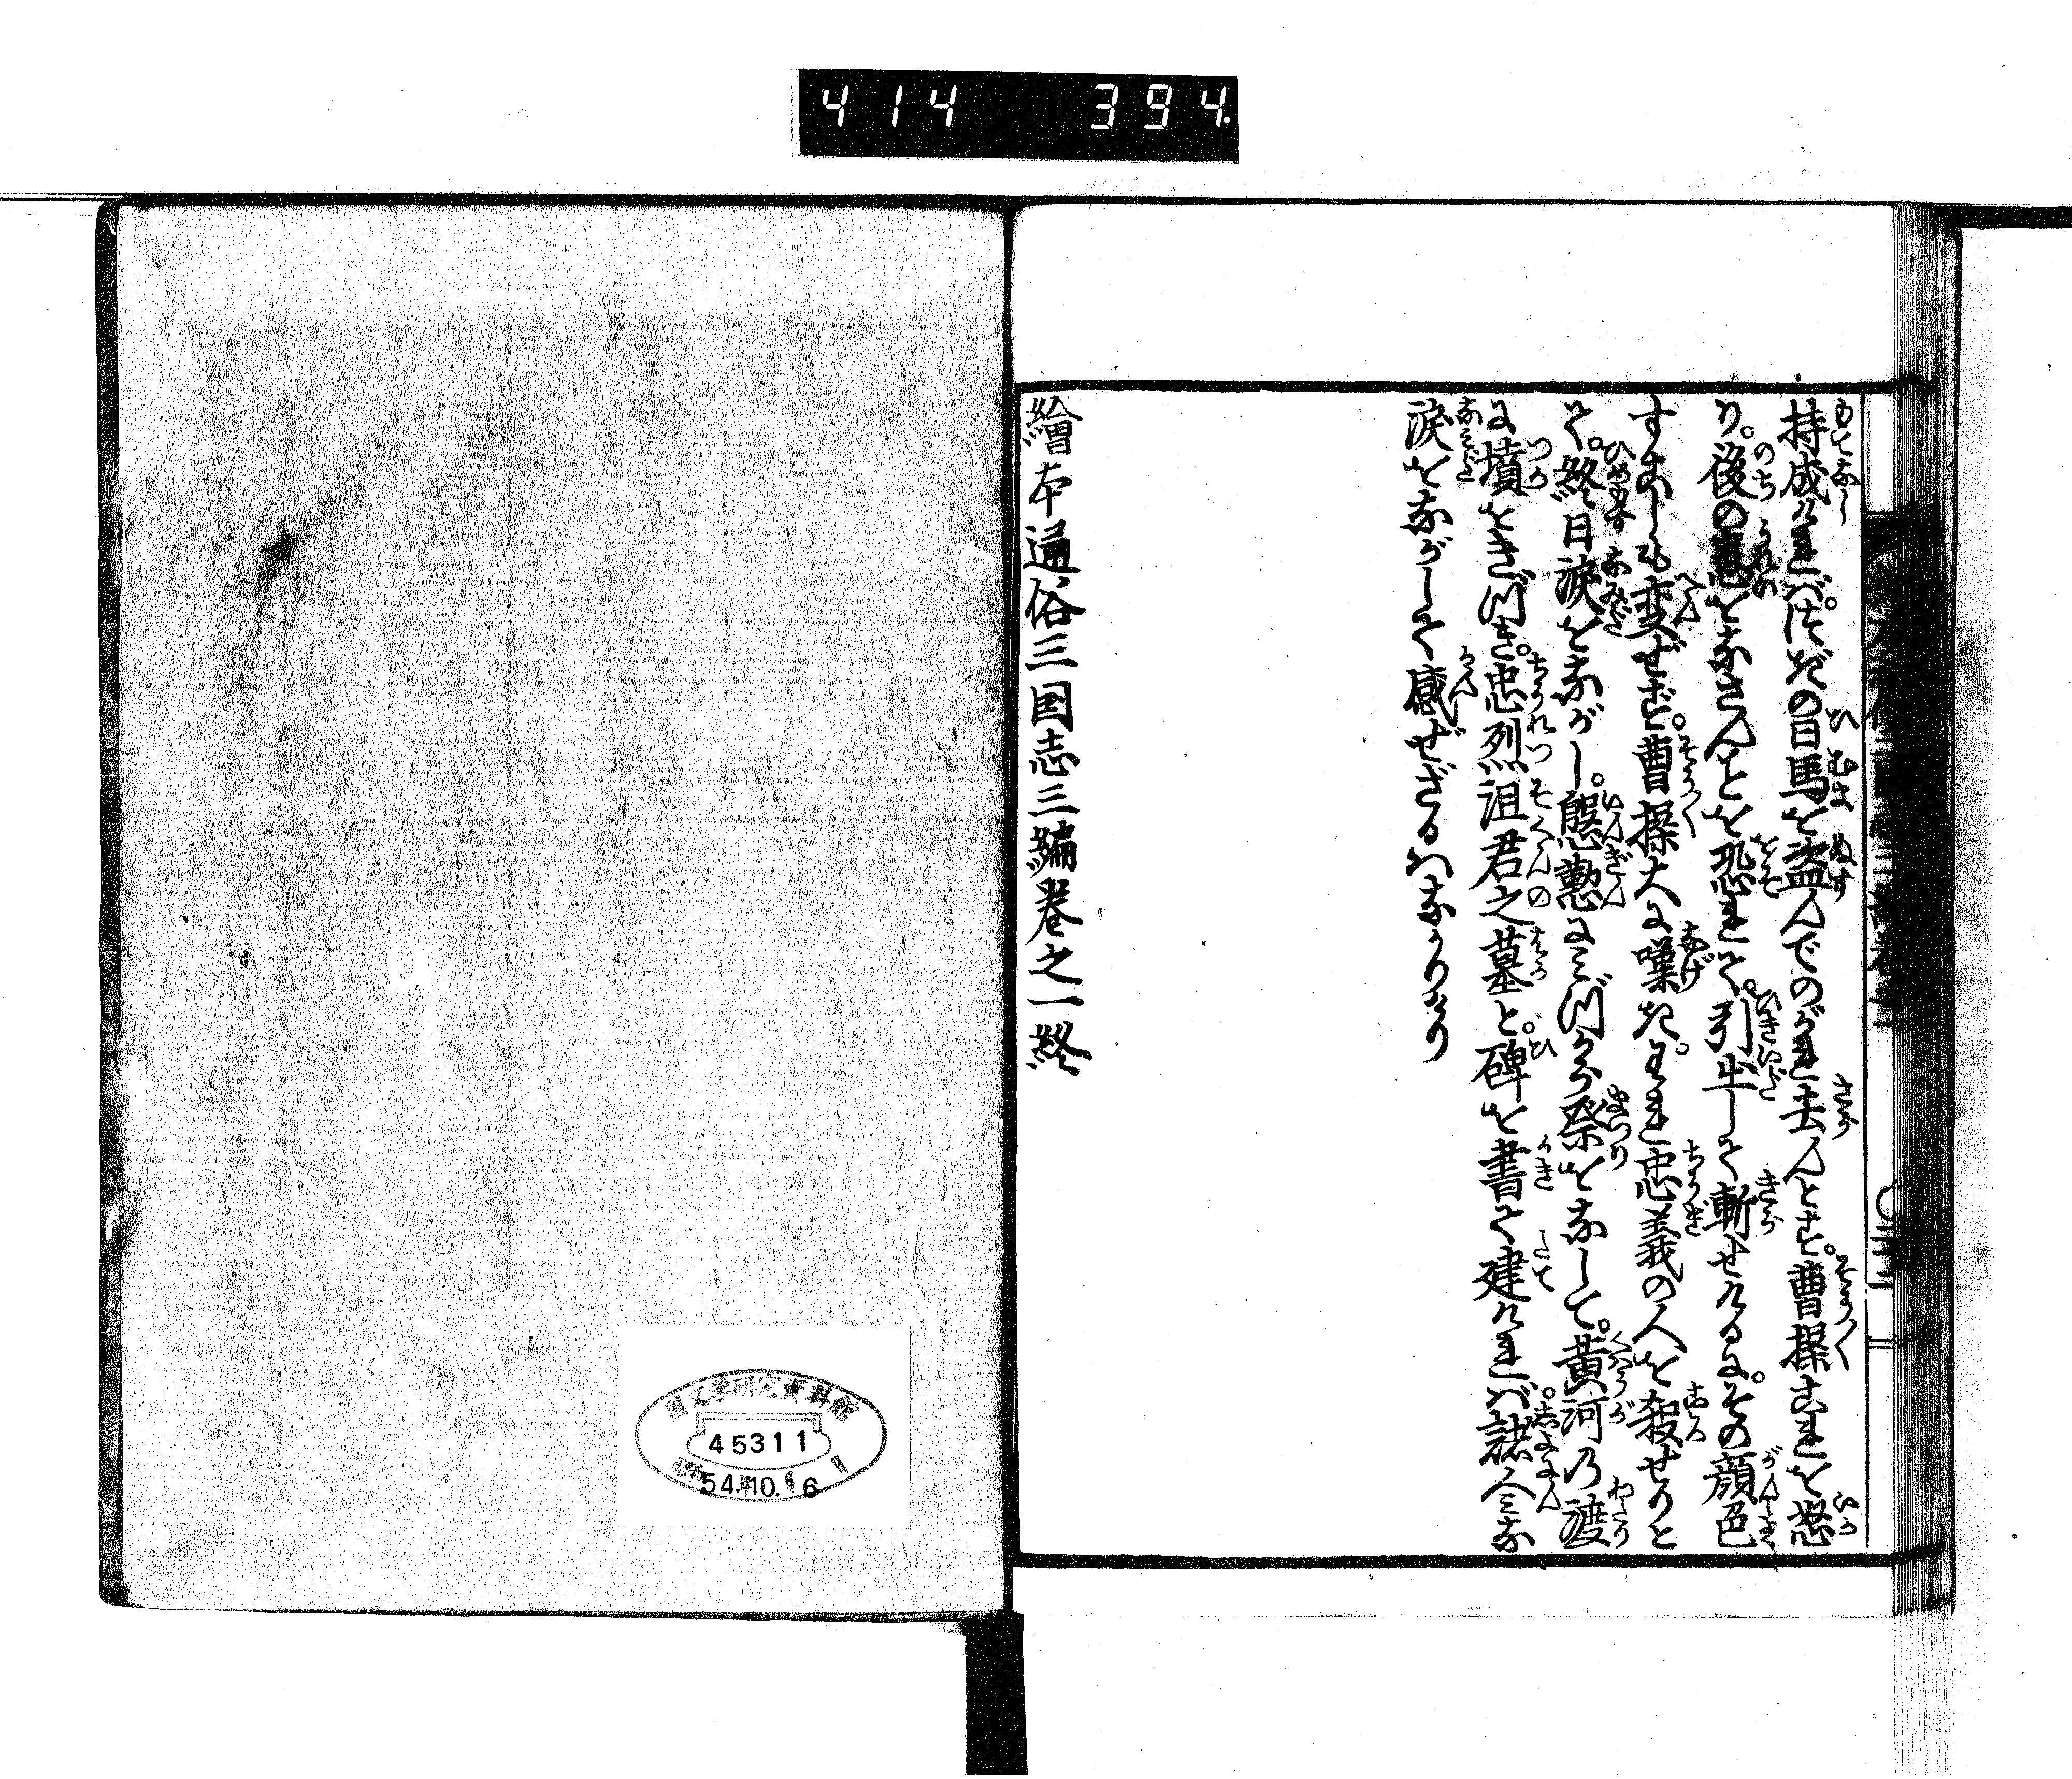 414 394.
持成ければ。はだの日馬を盗んでのがれ去んとす。曹操これを怒
り。後の患をなさんとを恐れて。引出して斬せけるに。その顔色
すこしも変ぜず。曹操大に嘆き。われ忠義の人を殺せりと
て。終日涙をながし。慇懃にみづから祭をなして。黄河乃渡
に墳をきづき。忠烈沮君之墓と。碑を書て建ければ。諸人みな
涙をながして感ぜざるはなかりけり
繪本通俗三国志三編巻之一終
国文学研究資料館
45311
昭和54年10月6日